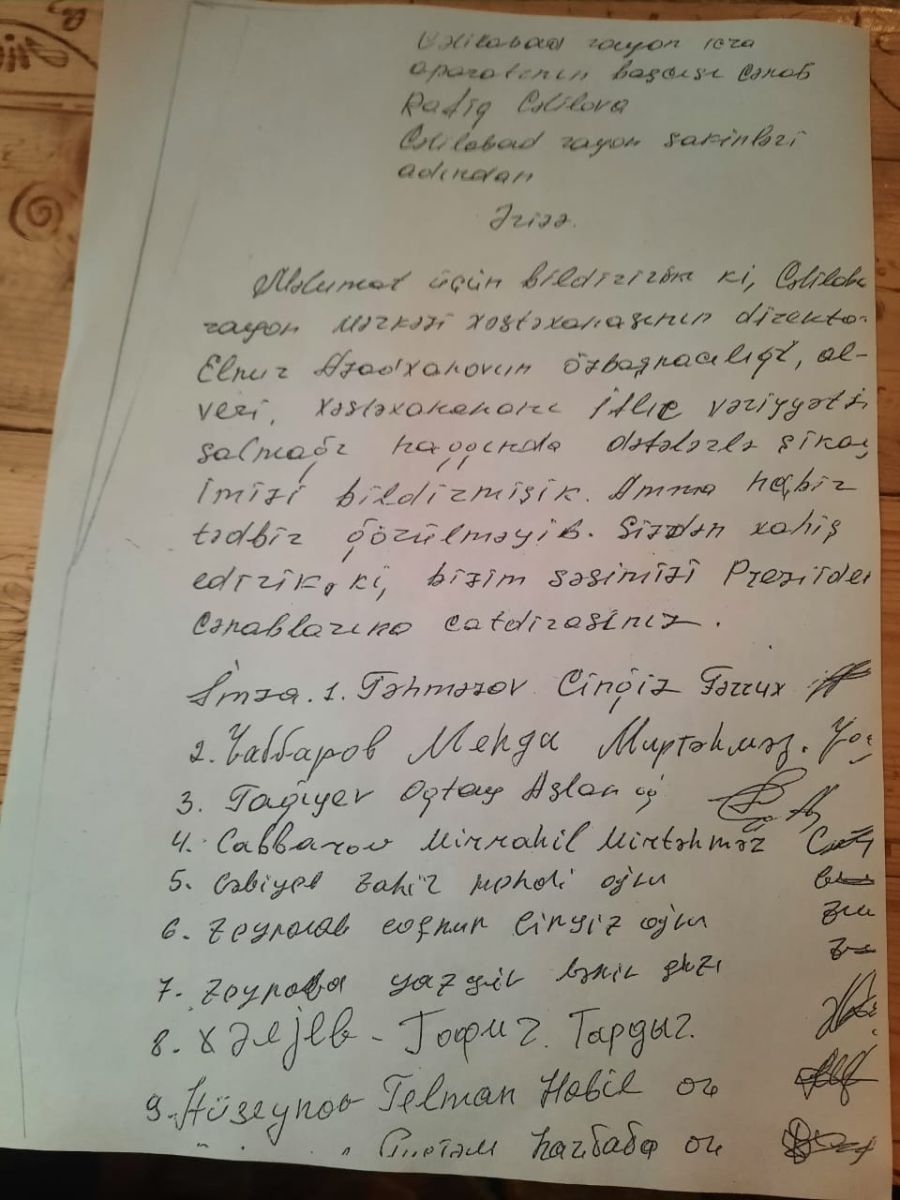 Cəlilabad rayon icra
aparatının başçısı cənab
Rafiq Cəlilova
Cəlilabad rayon sakinləri
adından
Ərizə.
Məlumat üçün bildiririk ki, Cəlilaba
rayon Mərkəzi xəstəxanasının direkto
Elnur Azadxanovun özbaşnacılığı, al-
veri, xəstəxanananı vəziyyətə
salmağı haqqında dəfələrlə şikay
imizi bildirmişik. Amma heçbir
tədbir görülməyib. Sizdən xahiş
edirik, ki, bizim səsimizi Prezide
Cənablarına catdırasınız.
İmza. 1. Təhməzov Cingiz Fərrux
2. Чаббаров Мехди
3. Tağıyev Oqtay Aslan oğ
4. Cabbarov Mirtəhməz
5. Zahir Mehdi oğlu
6. Cingiz oğlu
7. Zeynova qızı
8. Тофиг
9. Hüseynov Telman Habil oğ